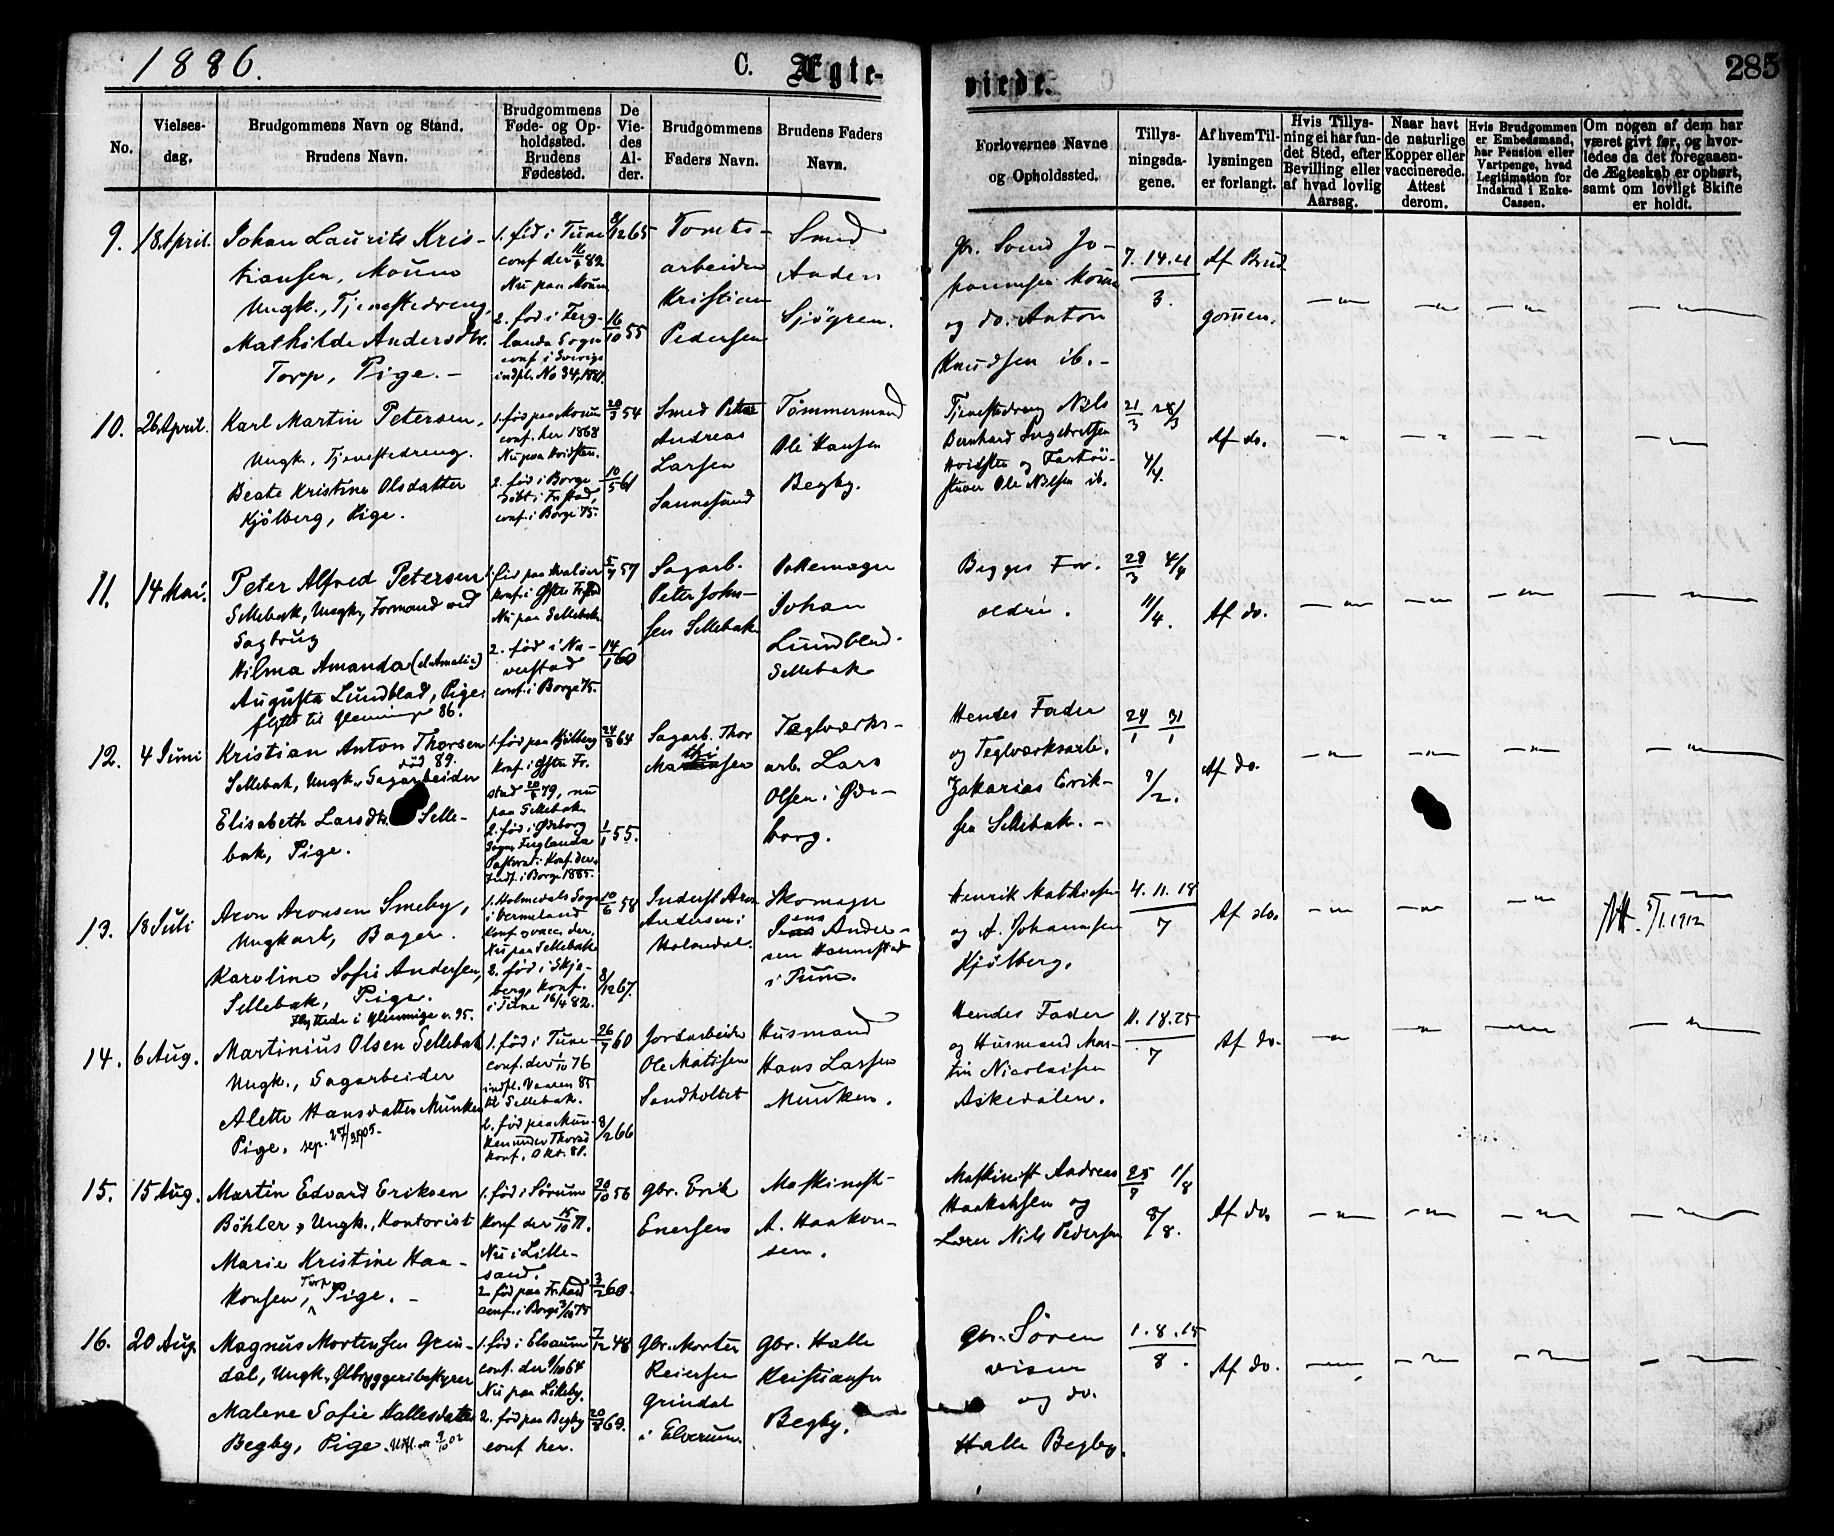 1886.
C. Ægte-
viede.
285
No.
Vielses-
dag.
Brudgommens Navn og Stand.
Brudens Navn.
Brudgommens
Føde- og Op-
holdssted.
Brudens
Fødested.
De
Vie-
des
Al-
der.
Brudgommens
Faders Navn.
Brudens Faders
Navn.
Forlovernes Navne
og Opholdssted.
Tillys-
ningsda-
gene.
Af hvem Til-
lysningen
er forlangt.
Hvis Tillys-
ning ei har fun-
det Sted, efter
Bevilling eller
af hvad lovlig
Aarsag.
Naar havt
de naturlige
Kopper eller
vaccinerede.
Attest
derom.
Hvis Brudgommen
er Embedsmand,
har Pension eller
Vartpenge, hvad
Legitimation for
Indskud i Enke-
Cassen.
Om nogen af dem har
været givt før, og hvor-
ledes da det foregaaen-
de Ægteskab er ophørt,
samt om lovligt Skifte
er holdt.
9. 18 April.
Johan Laurits Kris-
tiansen, Moum
Ungk., Tjenestedreng.
Mathilde Andersdtr.
Torp, Pige. -
1. fød i Tune
conf der 16/4 82
Nu paa Moum
2. fød i Ferg-
landa Sogn
conf i Sverige
indfl. No 34, 1881.
9/12 65
16/10 55
Tomte-
arbeider
Kristian
Pedersen
Smed
Anders
Sjögren.
gbr. Svend Jo-
hannesen Moum
og do. Anton
Knudsen ib. -
7. 14. 21
3.
Af Brud
gommen.
10. 26 April.
Karl Martin Petersen,
Ungk., Tjenestedreng.
Beate Kristine Olsdatter
Kjølberg, Pige.
1. fød paa Moum
conf. her 1868
Nu paa Hvidsten.
2. fød i Borge
døbt i Fr.stad,
conf. i Borge 75.
20/3 54
10/5 61
Smed Petter
Andreas
Larsen
Sannesund
Tømmermand
Ole Hansen
Begby.
Tjenestedreng Nils
Bernhard Ingebretsen
Hvidsten og Fartøi-
fører Ole Nilsen ib.
21/3 28/3
4/4.
Af do.
11. 14 Mai.
Peter Alfred Petersen
Sellebak, Ungk., Formand ved
Sagbrug
Hilma Amanda (el. Amalia)
Augusta Lundblad, Pige.
flyttet til Glemminge 86.
1. fød paa Hvaler
Konf. i Østre Fr.stad
Nu paa Sellebak
2. fød i Na-
verstad
conf. i Borge 75.
5/7 57
14/1 60
Sagarb.
Peter John-
sen Sellebak
Johan
Lundblad.
Sellebak
Begges For-
ældre.
28/3 4/4
11/4.
Af do.
12. 4 Juni
Kristian Anton Thorsen
død 89.
Sellebak, Ungk., Sagarbeider
Elisabeth Larsdtr. Selle-
bak, Pige.
1. fød paa Kjølberg
Konf. i Østre Fr.
stad 20/4 79, nu
paa Sellebak
2. fød i Ødeborg
Sogn, Ferglanda
Pastorat. Konf. der.
Indf. i Borge 1885.
24/9 64
1/1 55.
Sagarb. Thor
Mathisen
Teglværks-
arb. Lars
Olsen i Øde-
borg.
Hendes Fader
og Teglværksarb.
Zakarias Erik-
sen Sellebak. -
24/1 31/1
7/2.
Af do.
13. 18 Juli
Aron Aronsen Smeby,
Ungkarl, Bager.
Karoline Sofie Andersen,
Sellebak, Pige.
Flyttede i Glemminge v. 95.
1. Holmedals Sogn
i Vermeland
Konf. og vacc. der,
Nu paa Sellebak
2. fød i Skje-
berg, Konf.
i Tune 16/4 82.
10/6 58
8/12 67.
Inderst Aron
Andersen i
Holmedal.
Skomager
Jens Ander-
sen Hannestad
i Tune.
Henrik Mathiesen
og A. Johannesen
Kjølberg.
4. 11. 18
7
Af do.
5/1. 1912
14. 6 Aug.
Martinius Olsen Sellebak
Ungk., Sagarbeider
Alette Hansdatter Munken
Pige, sep.
1. fød i Tune
conf. der 1/10 76
indfl. Vaaren 85
til Sellebak.
2. fød paa Mun-
ken under Thorsø
Konf. Okt. 81.
26/7 60
8/2 66
Jordarbeider
Ole Matisen
Sandholtet
Husmand
Hans Larsen
Munken.
Hendes Fader
og Husmand Mar-
tin Nicolaisen
Askedalen.
11. 18. 25
7
Af do.
15. 15 Aug.
Martin Edvard Eriksen
Böhler, Ungk., Kontorist
Marie Kristine Haa-
konsen, Torp, Pige. -
1. fød i Sørum
Konf der 15/10 71.
Nu i Lille-
sand.
2. fød paa Fr.stad
conf. i Borge 3/10 75
20/10 56
3/2 60.
gbr. Erik
Enersen
Maskinist-
A. Haakon-
sen.
Maskinist Andreas
Haakonsen og
Lærer Nils Pedersen
25/7 1/8
8/8.
Af do.
16. 20 Aug.
Magnus Mortensen Grin-
dal, Ungk., Ølbryggeribestyrer
Malene Sofie Hallesdatter
Begby, Pige.
1. fød i Elverum
conf. der 9/10 64
Nu paa Lilleby.
2. fød paa Begby
conf her.
7/12 48
gbr. Morten
Reiersen
Grindal
i Elverum.
gbr. Halle
Kristiansen
Begby.
gbr. Søren
og do.
Halle Begby.
1. 8. 15
8.
Af do.